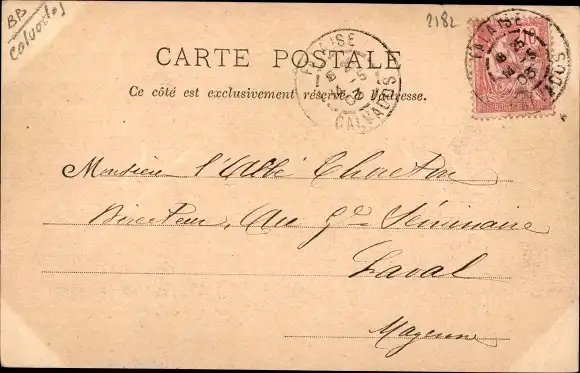 BB
Calvados
2182
CARTE POSTALE
Ce côté est exclusivement réservé à l'adresse.
FALAISE
CALVADOS
FALAISE
Monsieur l'Abbé
Directeur, au Gd Séminaire
Laval
Mayenne